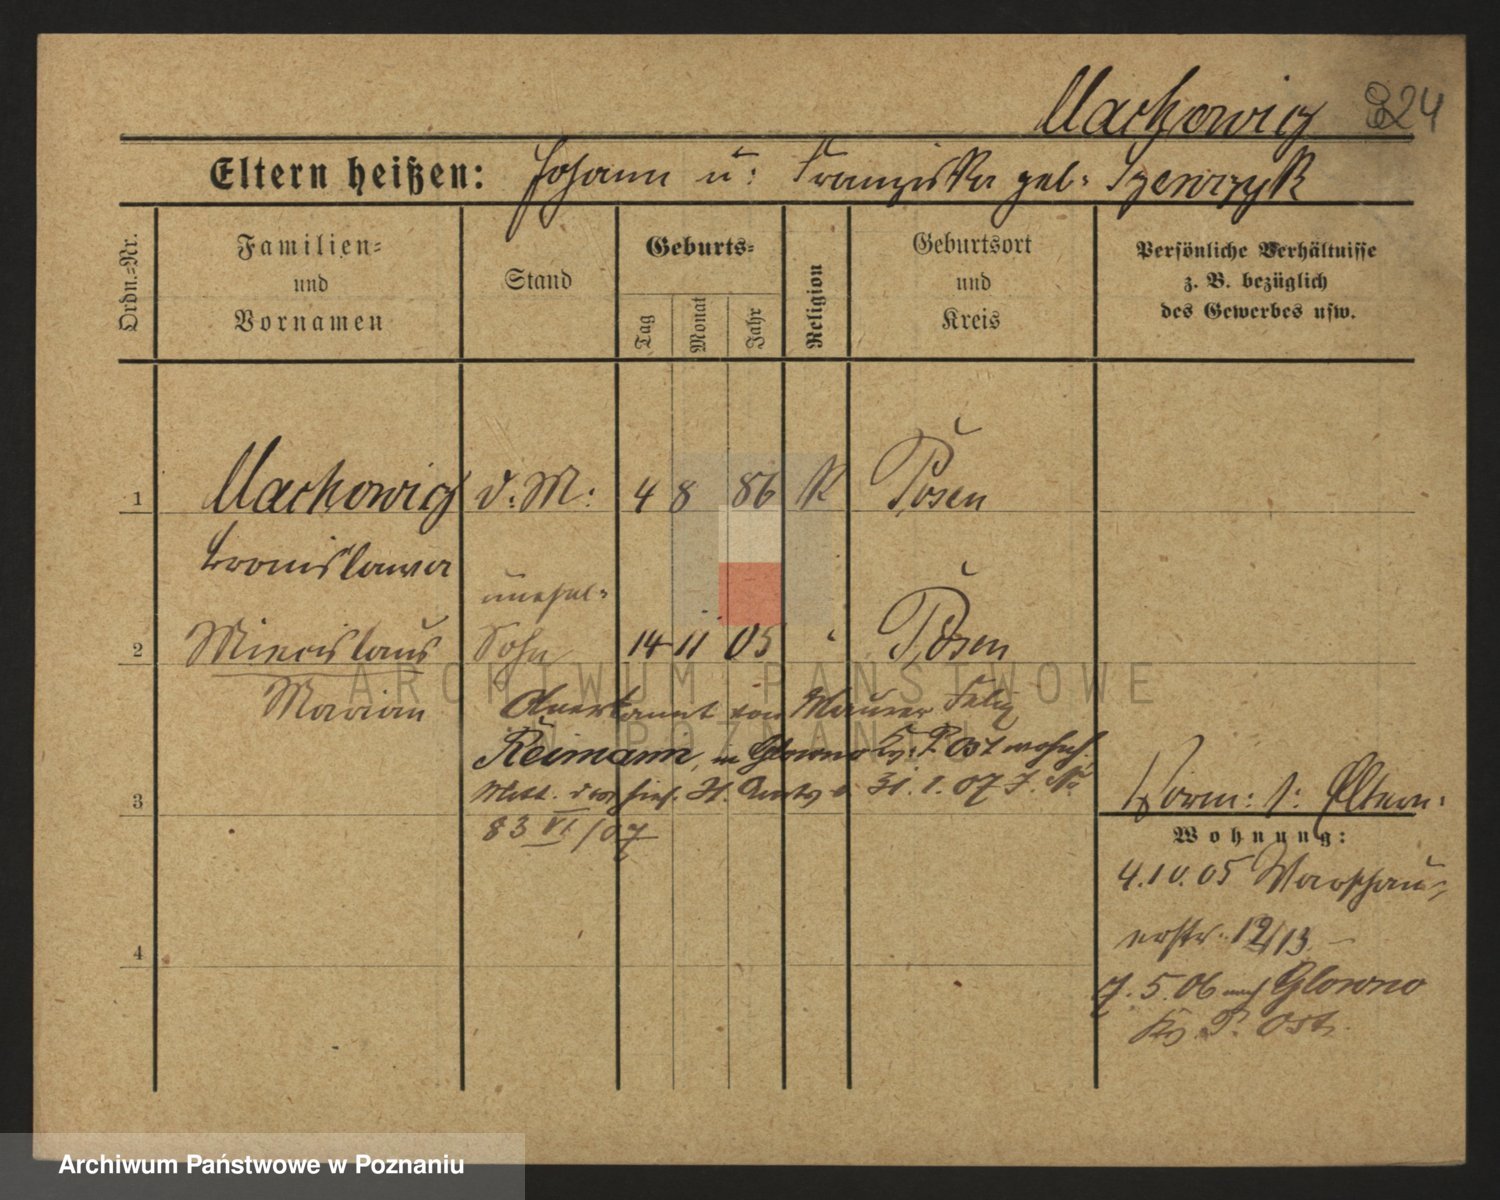 Machowicz 224
Eltern heißen: Johann u: Franziska geb. Szewczyk
Ordn.-Nr.
Familien-
und
Vornamen
Stand
Geburts-
Tag
Monat
Jahr
Religion
Geburtsort
und
Kreis
Persönliche Verhältnisse
z. B. bezüglich
des Gewerbes usw.
1 Machowicz d. M. 4 8 86 K Posen
Bronislawa
unehel-
2 Miecislaus Sohn 14 11 05 " Posen
Marian
Anerkannt von Maurer Felix
Reimann, in Glowno Kr. P. Ost wohnh.
Mitt. des hies. St. Amts v. 31.1.07 J. No
83 VI/07
3
Vorm: s: Eltern:
Wohnung:
4.10.05 Warschau-
erstr. 12/13. -
4
7.5.06 nach Glowno
Kr. P. Ost.
ARCHIWUM PAŃSTWOWE
W POZNANIU
Archiwum Państwowe w Poznaniu